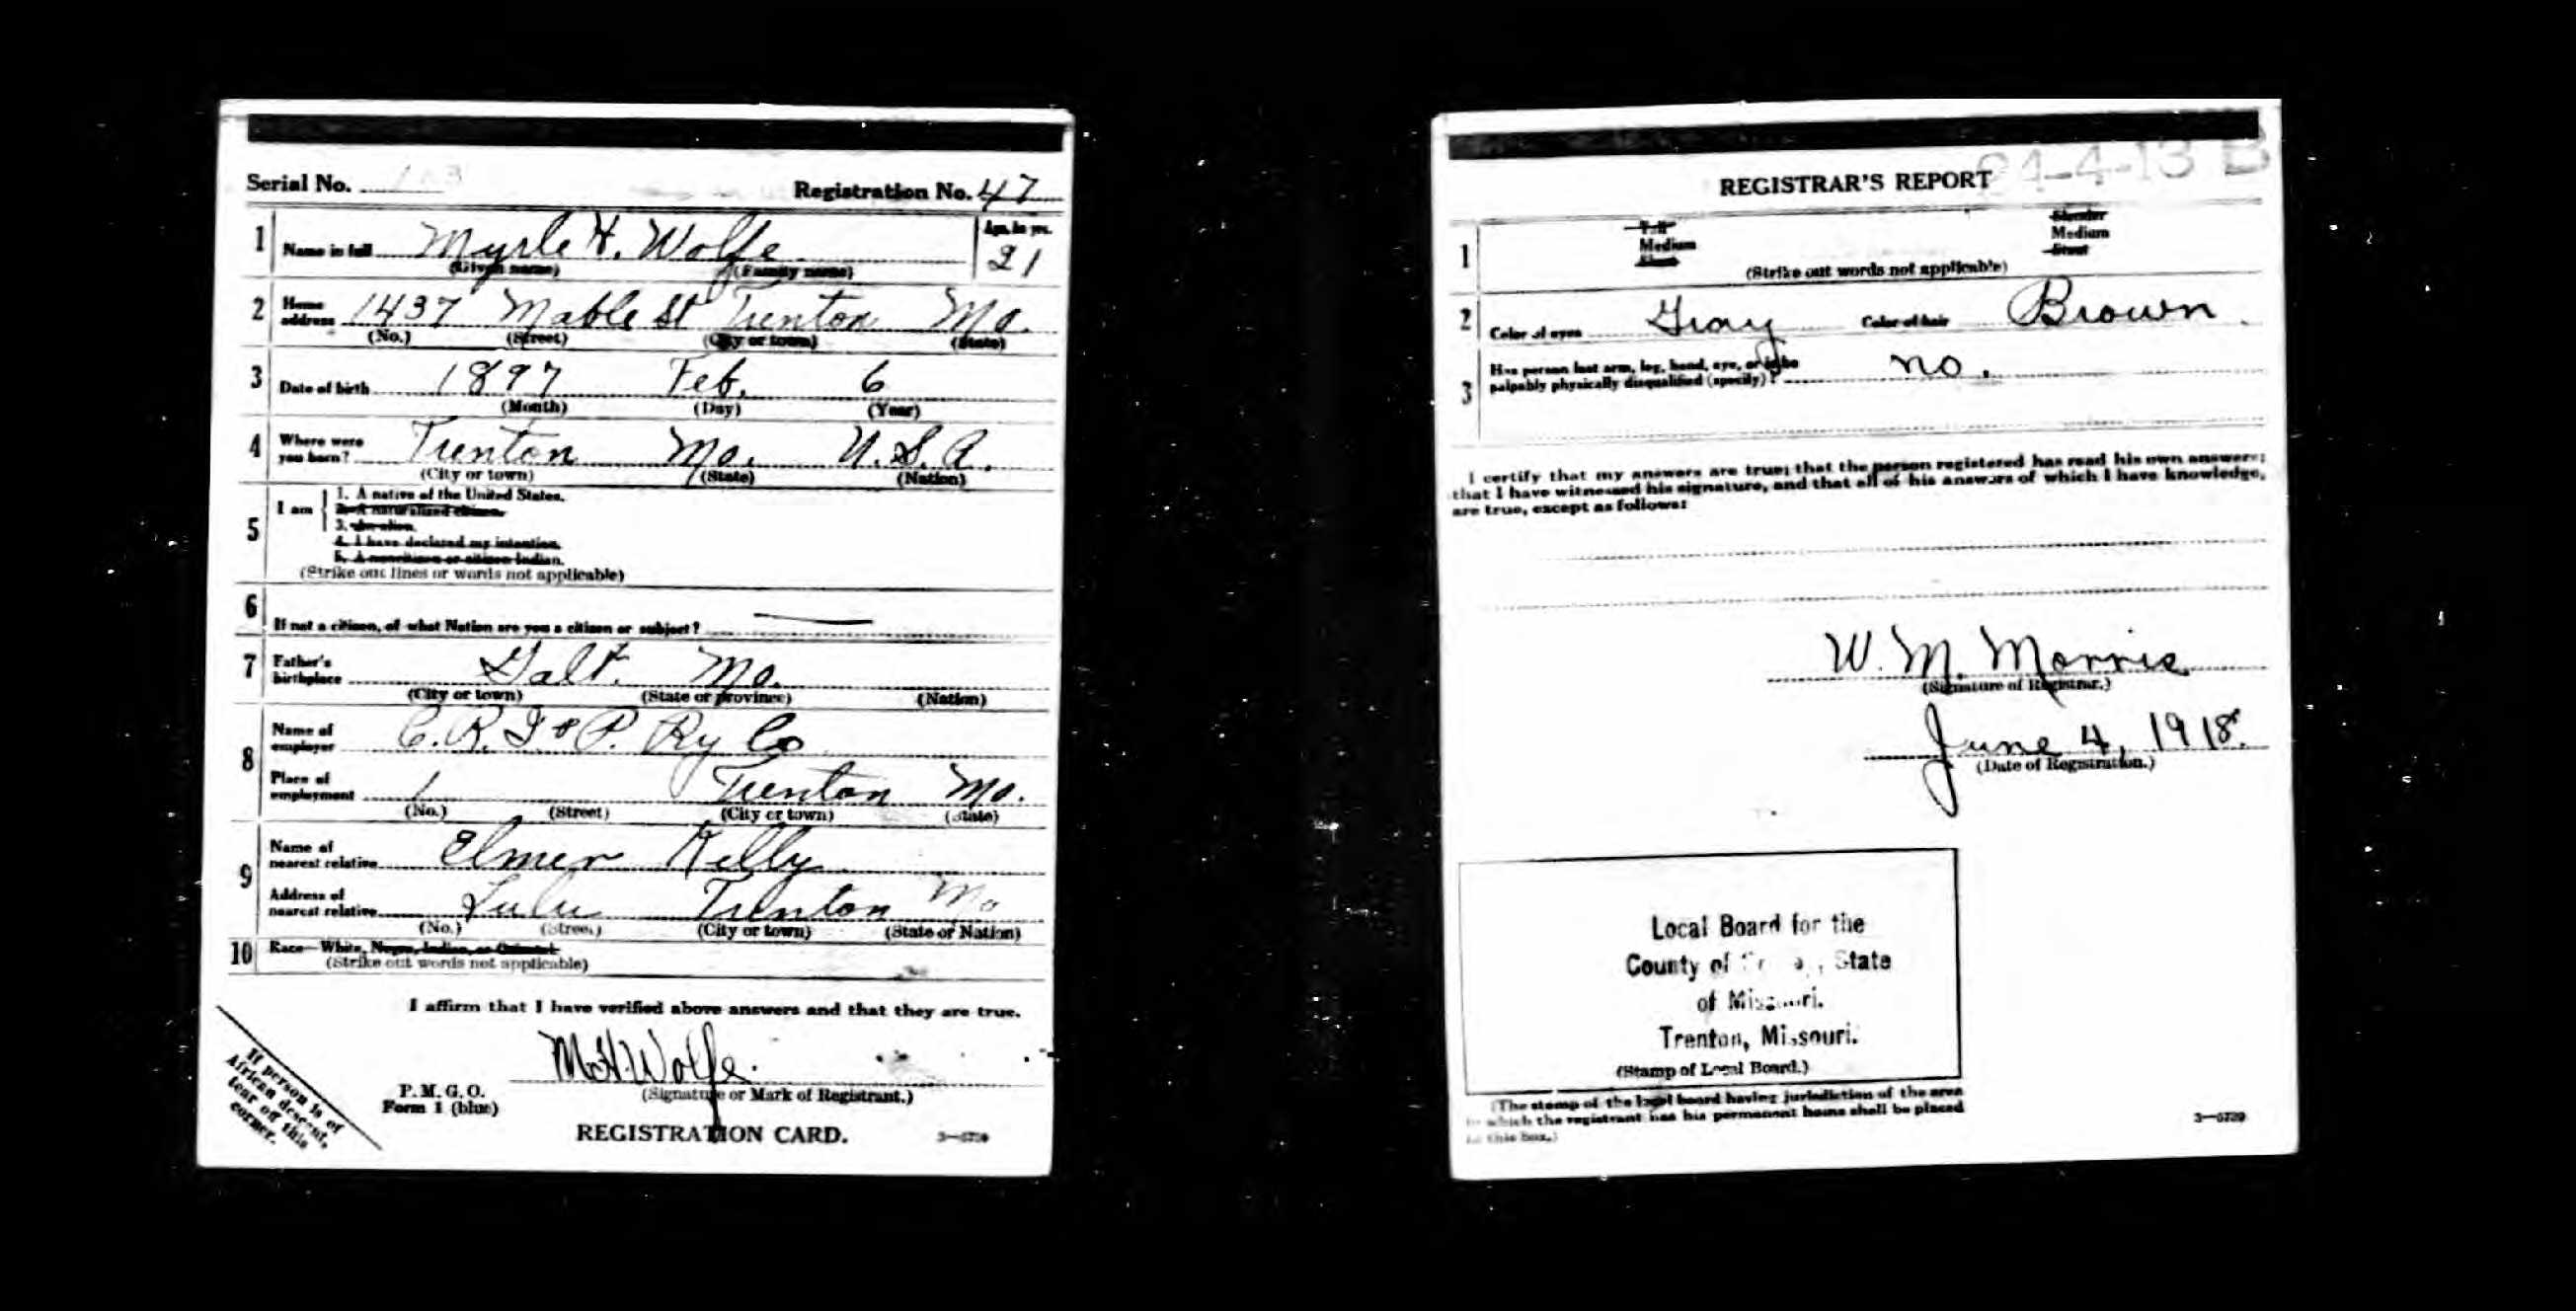 Serial No. Registration No. 47
1 Name in full Myrle H. Wolfe Age, in yrs. 21
(Given name) (Family name)
2 Home address 1437 Mable St Trenton Mo.
(No.) (Street) (City or town) (State)
3 Date of birth 1897 Feb. 6
(Month) (Day) (Year)
4 Where were you born? Trenton Mo. U.S.A.
(City or town) (State) (Nation)
5 I am
1. A native of the United States.
2. A naturalized citizen.
3. An alien.
4. I have declared my intention.
5. A noncitizen or citizen Indian.
(Strike out lines or words not applicable)
6 If not a citizen, of what Nation are you a citizen or subject?
7 Father's birthplace Galt. Mo.
(City or town) (State or province) (Nation)
8 Name of employer C. R. I & P. Ry Co
Place of employment Trenton Mo.
(No.) (Street) (City or town) (State)
9 Name of nearest relative Elmer Kelly
Address of nearest relative Lulu Trenton Mo
(No.) (Street) (City or town) (State or Nation)
10 Race—White, Negro, Indian, or Oriental.
(Strike out words not applicable)
I affirm that I have verified above answers and that they are true.
M.H. Wolfe.
(Signature or Mark of Registrant.)
P. M. G. O.
Form 1 (blue)
REGISTRATION CARD.
If person is of
African descent,
tear off this
corner.
24-4-13 B
REGISTRAR'S REPORT
1 Tall Slender
Medium Medium
Short Stout
(Strike out words not applicable)
2 Color of eyes Gray Color of hair Brown
3 Has person lost arm, leg, hand, eye, or is he
palpably physically disqualified (specify)? no.
I certify that my answers are true; that the person registered has read his own answers;
that I have witnessed his signature, and that all of his answers of which I have knowledge,
are true, except as follows:
W. M. Morris
(Signature of Registrar.)
June 4, 1918.
(Date of Registration.)
Local Board for the
County of State
of Missouri.
Trenton, Missouri.
(Stamp of Local Board.)
(The stamp of the local board having jurisdiction of the area
in which the registrant has his permanent home shall be placed
in this box.)
3—6729